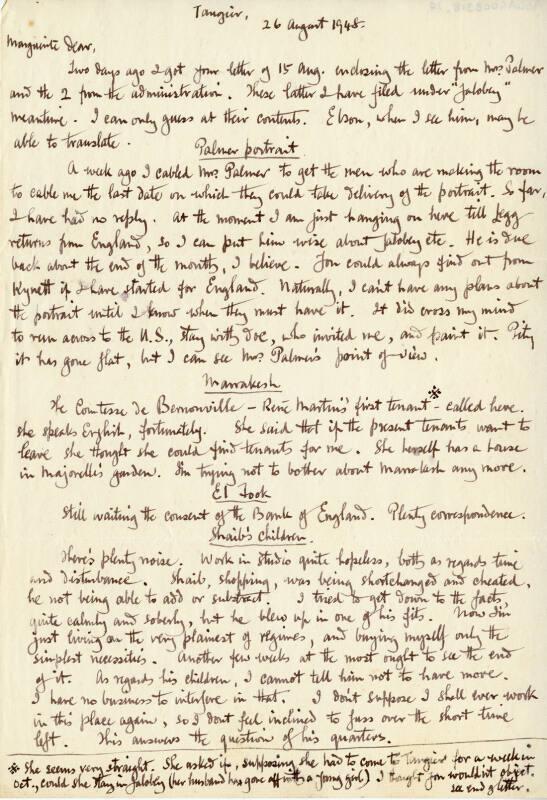 Tangier,
26 August 1948.
Marguerite Dear,
Two days ago I got your letter of 15 Aug. enclosing the letter from Mrs. Palmer
and the 2 from the administration. These latter I have filed under "Jalobey"
meantime. I can only guess at their contents. Elson, when I see him, may be
able to translate.
Palmer portrait
A week ago I cabled Mrs. Palmer to get the men who are making the room
to cable me the last date on which they could take delivery of the portrait. So far,
I have had no reply. At the moment I am just hanging on here till Jegg
returns from England, so I can put him wise about Jalobey etc. He is due
back about the end of the month, I believe. You could always find out from
Kynett if I have started for England. Naturally, I can't have any plans about
the portrait until I know when they must have it. It did cross my mind
to run across to the U.S., stay with Doe, who invited me, and paint it. Pity
it has gone flat, but I can see Mrs. Palmer's point of view.
Marrakesh
The Comtesse de Bernonville – René Martin's first tenant* – called here.
She speaks English, fortunately. She said that if the present tenants want to
leave she thought she could find tenants for me. She herself has a house
in Majorelle's garden. I'm trying not to bother about Marrakesh any more.
El Fook
Still waiting the consent of the Bank of England. Plenty correspondence.
Shaib's children.
There's plenty noise. Work in studio quite hopeless, both as regards time
and disturbance. Shaib, shopping, was being shortchanged and cheated,
he not being able to add or subtract. I tried to get down to the facts,
quite calmly and soberly, but he blew up in one of his fits. Now I'm
just living on the very plainest of regimes, and buying myself only the
simplest necessities. Another few weeks at the most ought to see the end
of it. As regards his children, I cannot tell him not to have more.
I have no business to interfere in that. I don't suppose I shall ever work
in this place again, so I don't feel inclined to fuss over the short time
left. This answers the question of his quarters.
* She seems very straight. She asked if, supposing she had to come to Tangier for a week in
Oct., could she stay in Jalobey (her husband has gone off with a young girl) I thought you wouldn't object.
see end of letter.